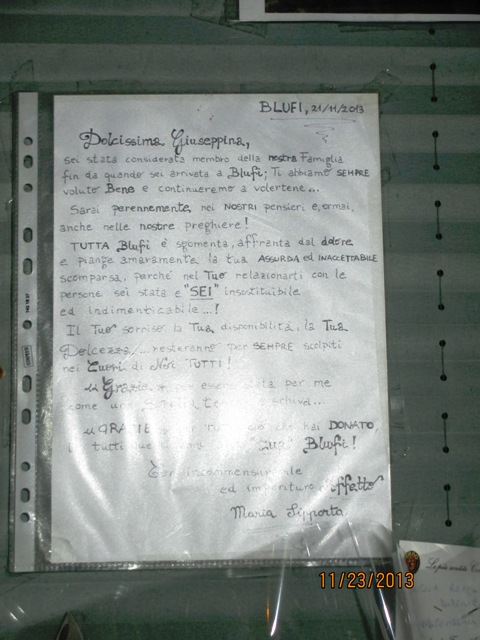 BLUFI, 21/11/2013
Dolcissima Giuseppina,
sei stata considerata membro della nostra Famiglia
fin da quando sei arrivata a Blufi; Ti abbiamo SEMPRE
voluto Bene e continueremo a volertene...
Sarai perennemente nei NOSTRI pensieri e, ormai,
anche nelle nostre preghiere!
TUTTA Blufi è sgomenta, affranta dal dolore
e piange amaramente la tua ASSURDA ed INACCETTABILE
scomparsa, perché nel Tuo relazionarti con le
persone sei stata e "SEI" insostituibile
ed indimenticabile...!
Il Tuo sorriso, la Tua disponibilità, la Tua
Dolcezza... resteranno per SEMPRE scolpiti
nei Cuori di Noi TUTTI!
Grazie per essere stata per me
come una
GRAZIE che hai DONATO,
tutti "tua" Blufi!
Con incommensurabile
ed imperituro affetto
Maria Sipporta
11/23/2013